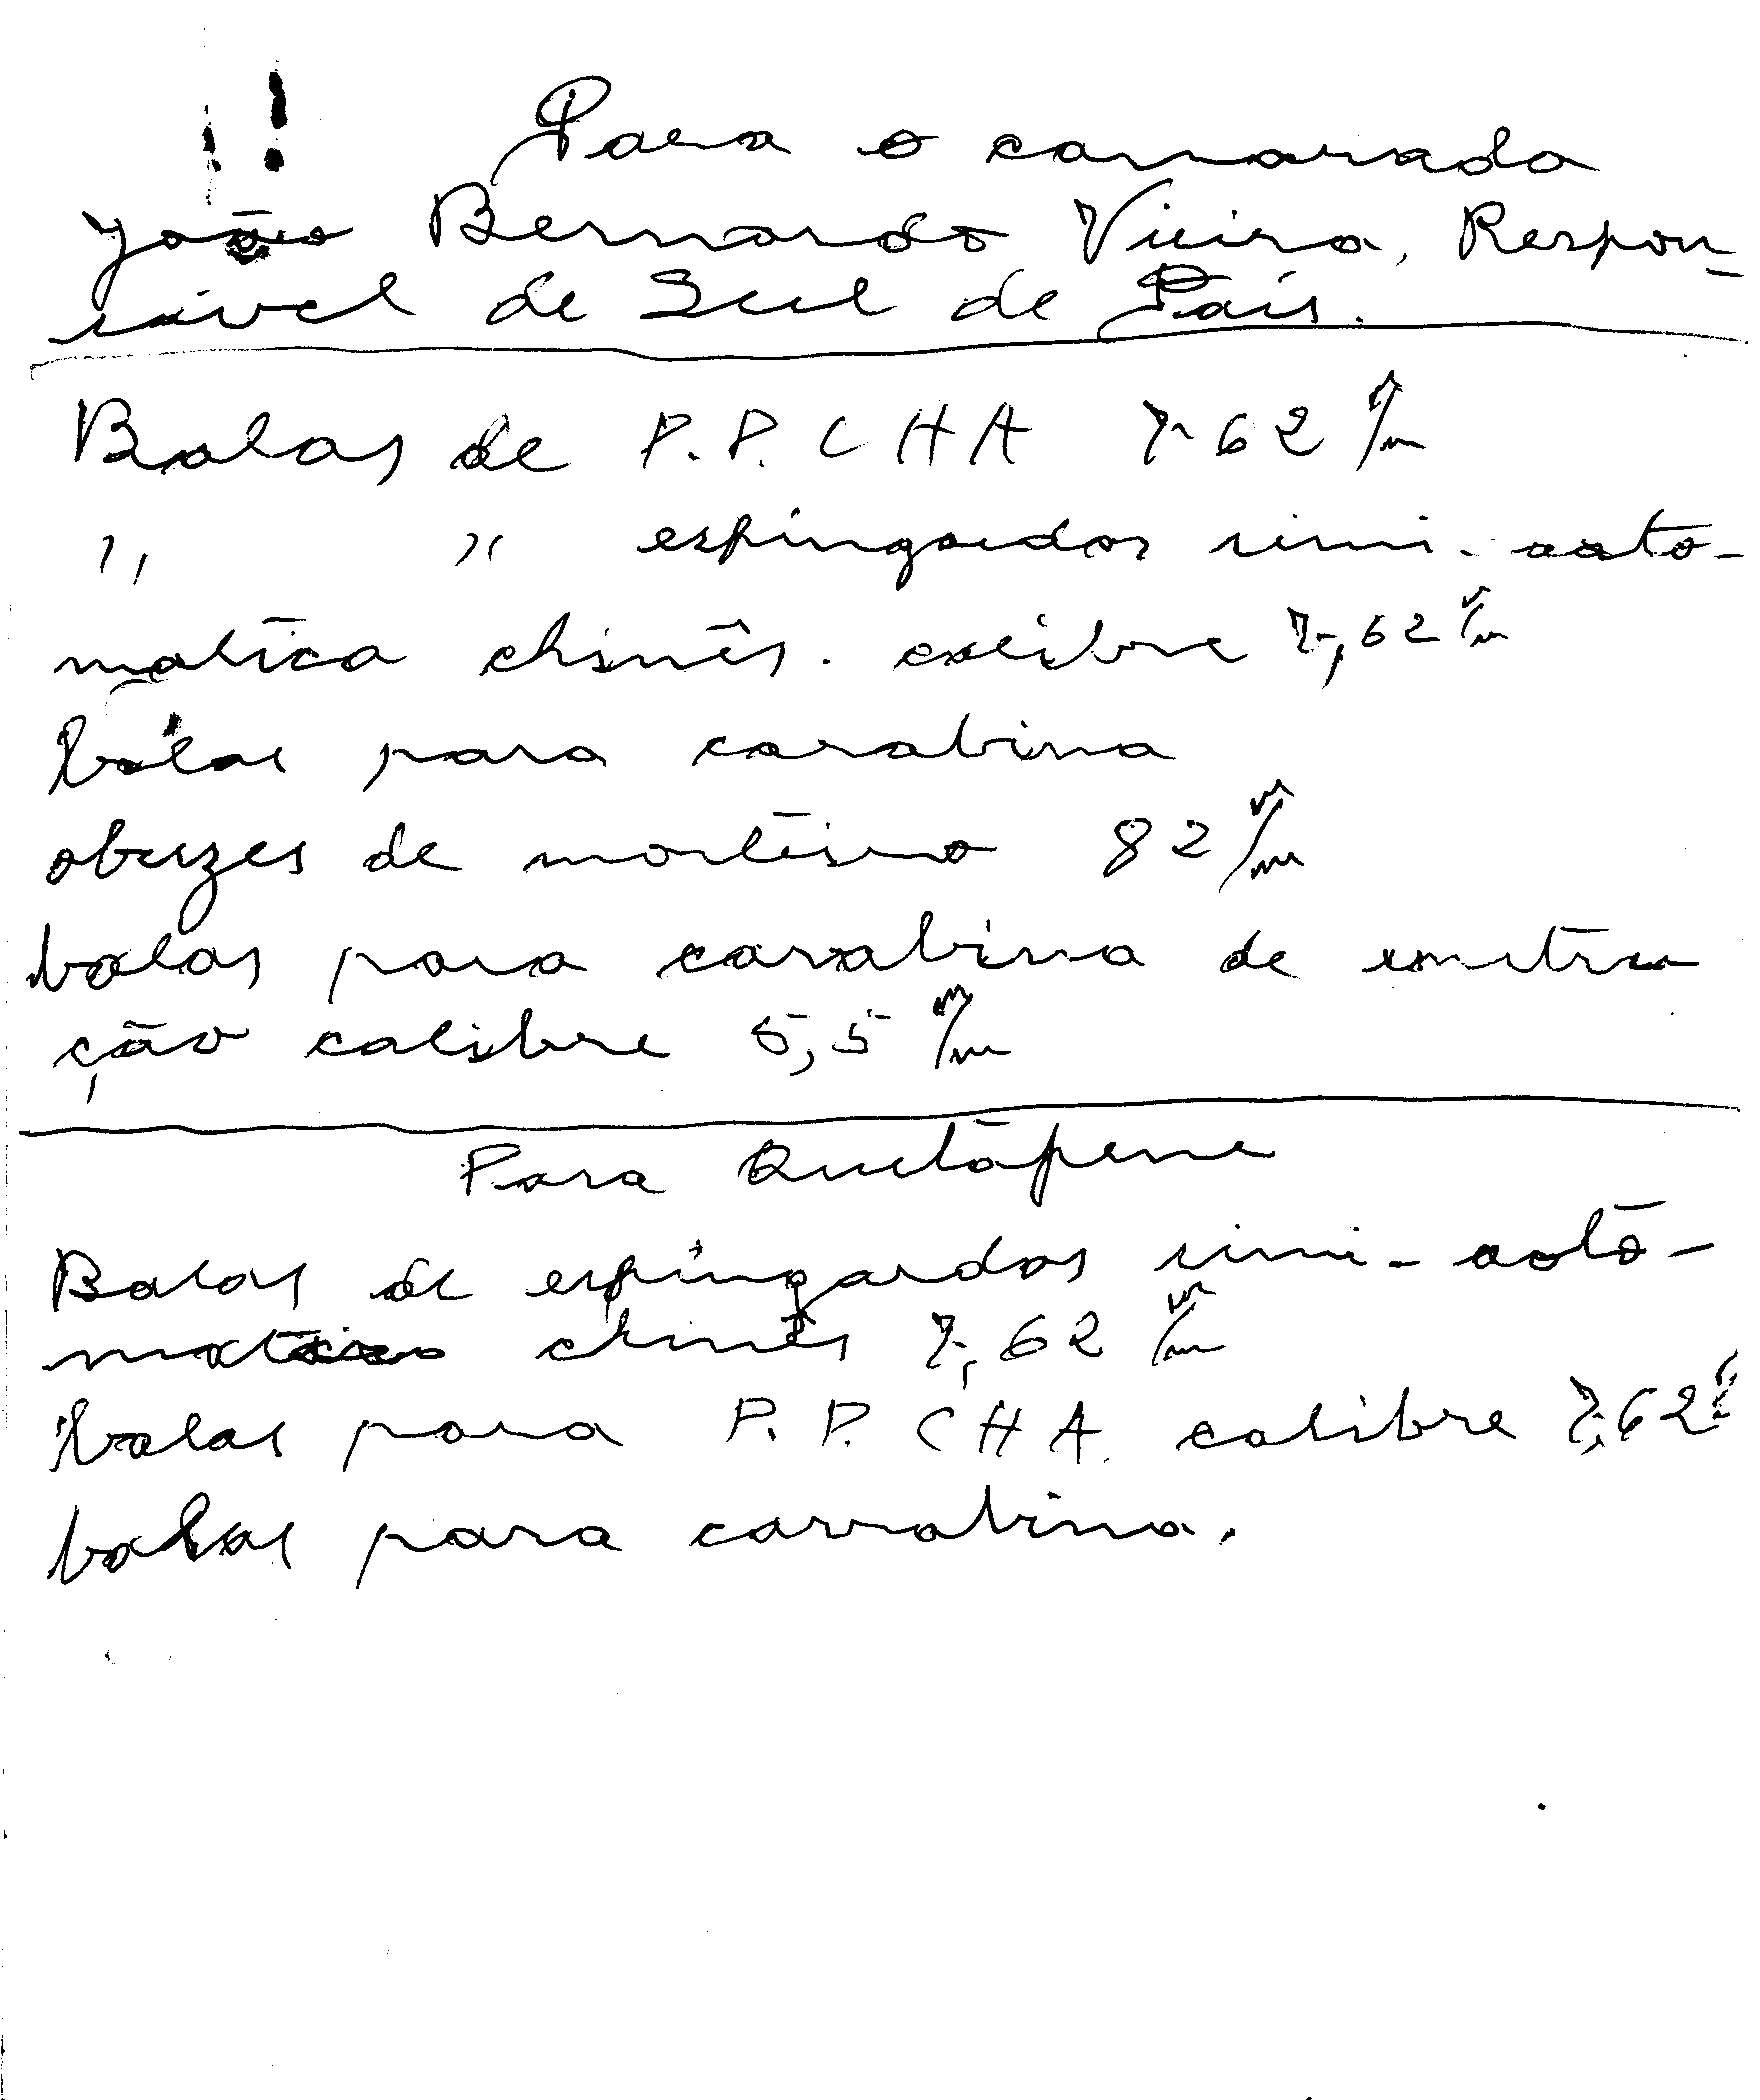 !! Para o camarada
João Bernardo Vieira, Respon-
sável de Sul de País.
Balas de P.P. CHA 7-62 m/m
" " espingardas simi-auto-
matica chinês. calibre 7,62 m/m
balas para carabina
obuzes de morteiro 82 m/m
balas para carabina de instru
ção calibre 5,5 m/m
Para Quetáfene
Balas de espingardas simi-autó-
matica chinês 7,62 m/m
balas para P.P. CHA calibre 7,62
balas para carrabina.